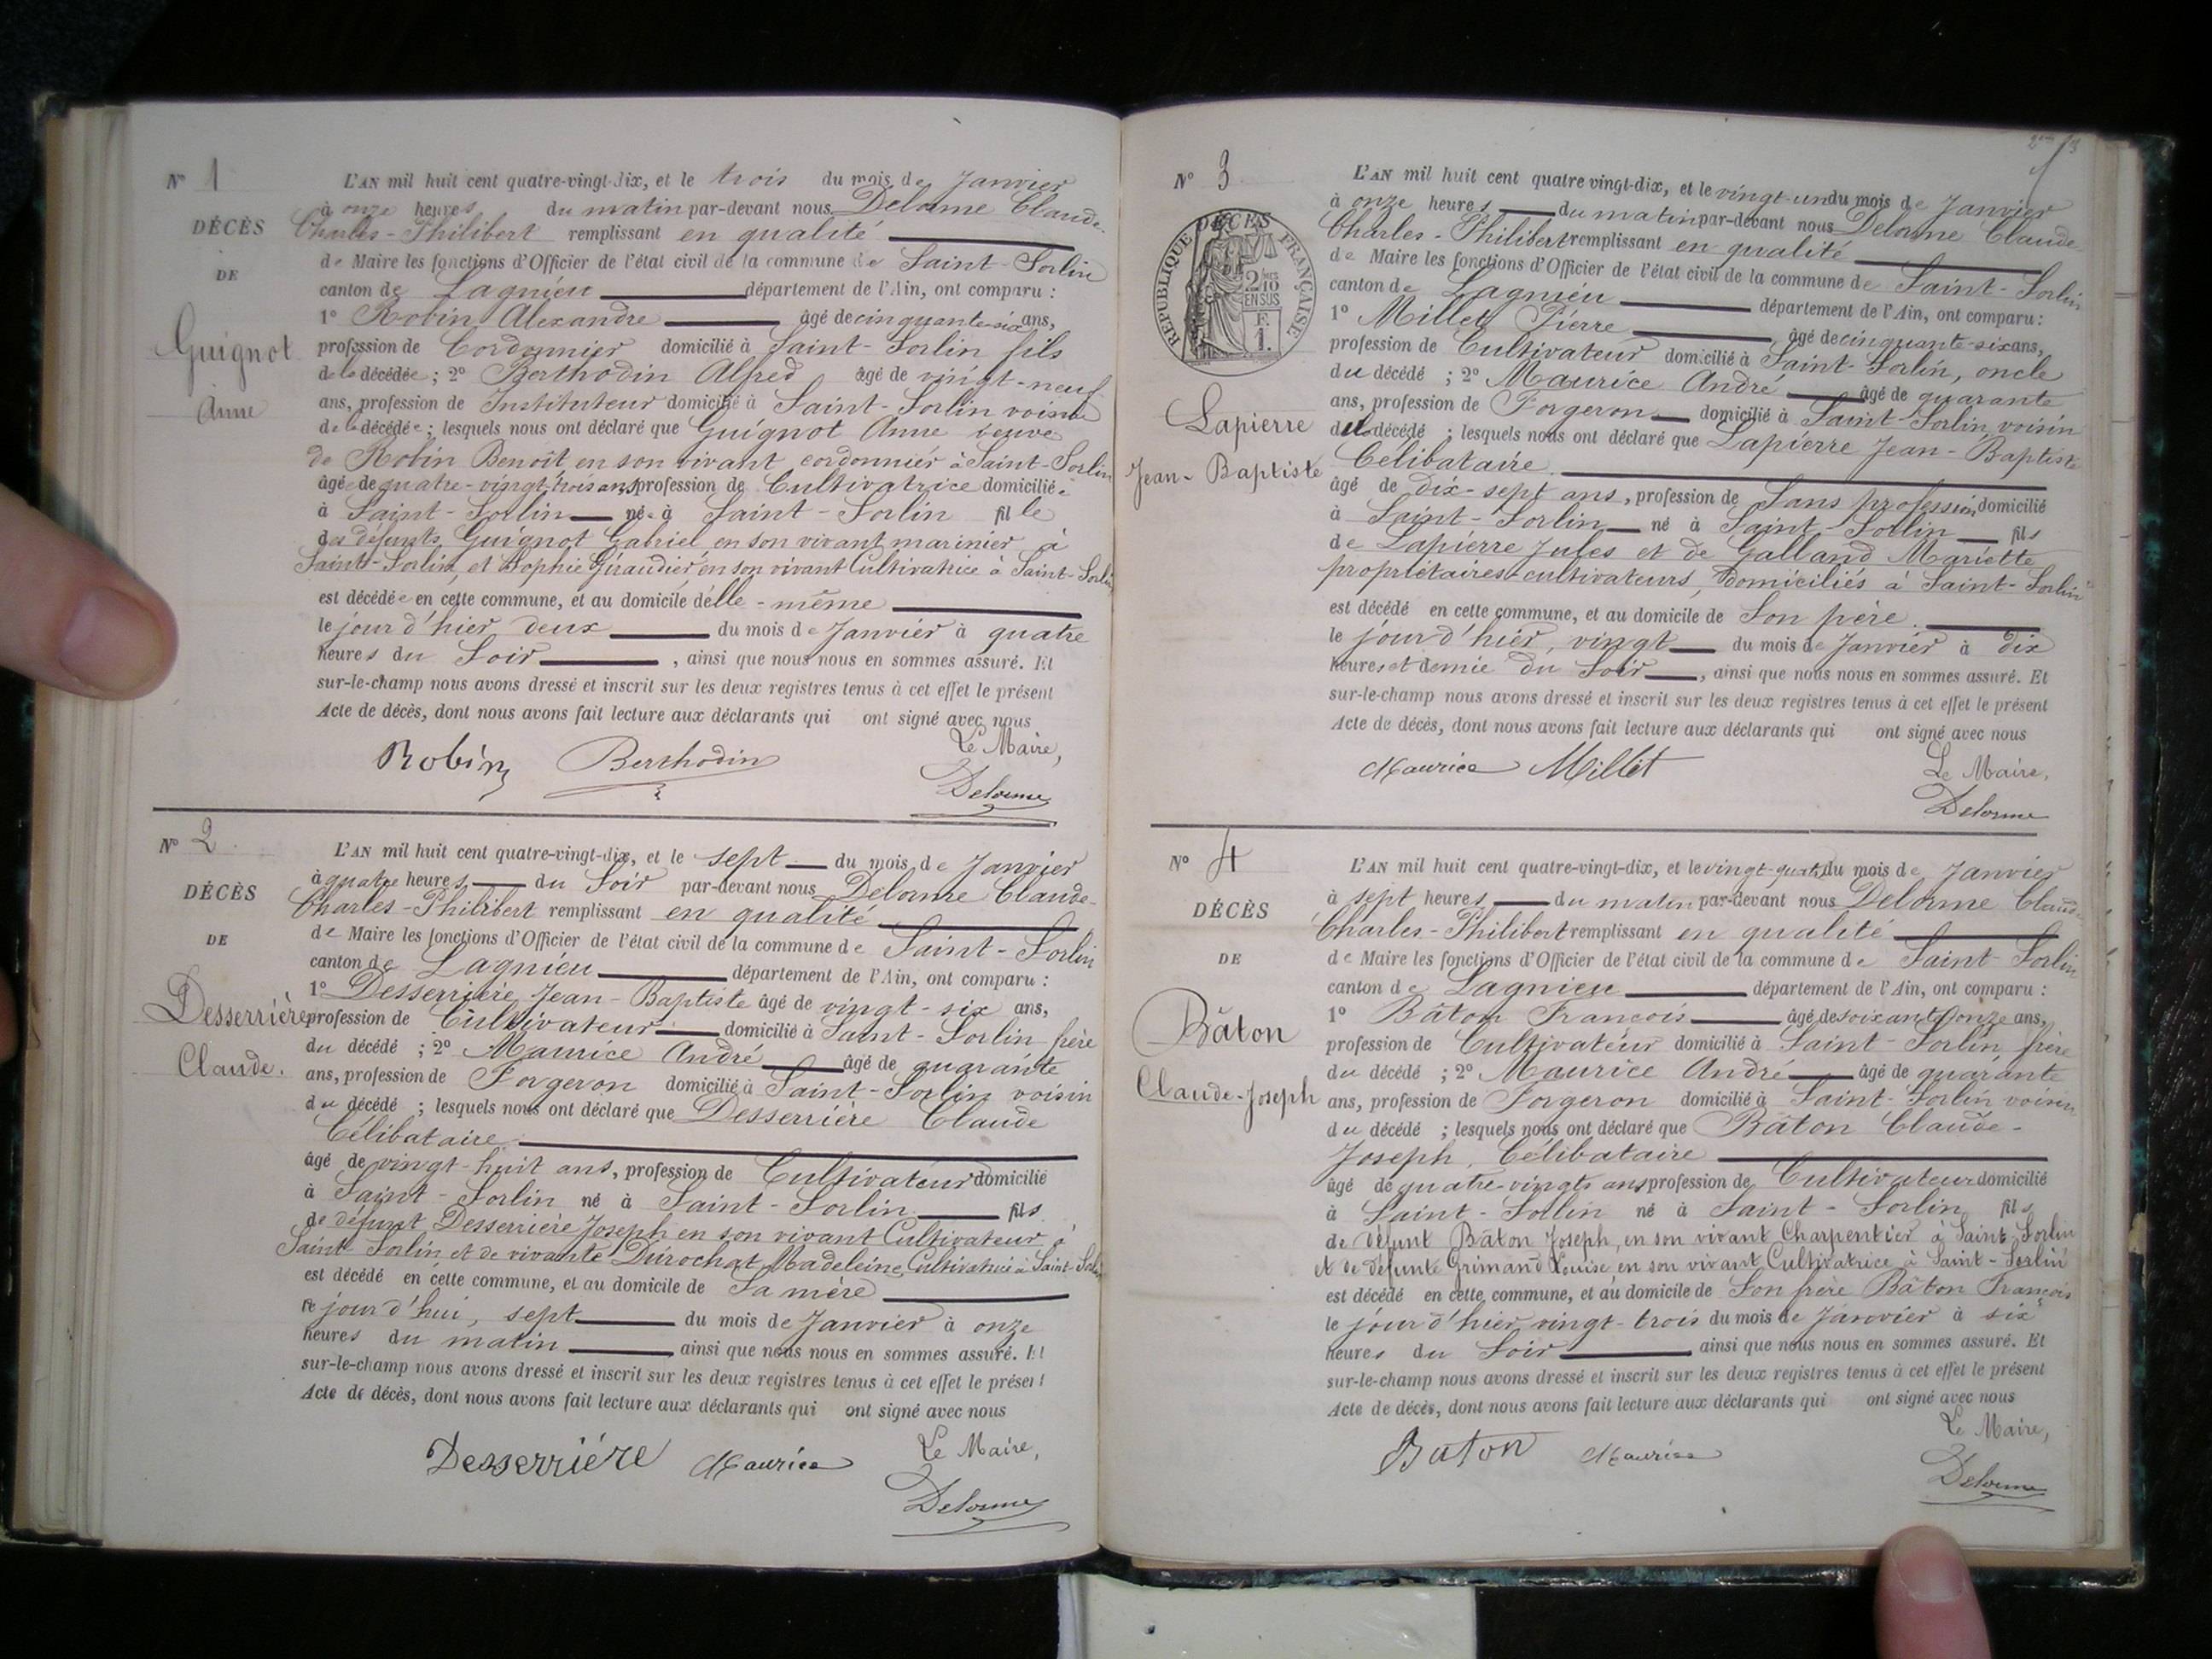 N° 1
DÉCÈS
DE
Guignot
Anne
L'AN mil huit cent quatre-vingt-dix, et le trois du mois de Janvier
à onze heures du matin par-devant nous Delorme Claude-
Charles-Philibert remplissant en qualité
de Maire les fonctions d'Officier de l'état civil de la commune de Saint-Sorlin
canton de Lagnieu département de l'Ain, ont comparu :
1° Robin Alexandre âgé de cinquante-six ans,
profession de Cordonnier domicilié à Saint-Sorlin fils
de la décédée ; 2° Berthodin Alfred âgé de vingt-neuf
ans, profession de Instituteur domicilié à Saint-Sorlin voisin
de la décédée ; lesquels nous ont déclaré que Guignot Anne veuve
de Robin Benoît en son vivant cordonnier à Saint-Sorlin
âgée de quatre-vingt-trois ans profession de Cultivatrice domiciliée
à Saint-Sorlin née à Saint-Sorlin fille
des défunts Guignot Gabriel en son vivant marinier à
Saint-Sorlin, et Sophie Giraudier en son vivant Cultivatrice à Saint-Sorlin
est décédée en cette commune, et au domicile d'elle-même
le jour d'hier deux du mois de Janvier à quatre
heures du Soir , ainsi que nous nous en sommes assuré. Et
sur-le-champ nous avons dressé et inscrit sur les deux registres tenus à cet effet le présent
Acte de décès, dont nous avons fait lecture aux déclarants qui ont signé avec nous
Le Maire,
Robin Berthodin
Delorme
N° 2
DÉCÈS
DE
Desserrière
Claude.
L'AN mil huit cent quatre-vingt-dix, et le sept du mois de Janvier
à quatre heures du Soir par-devant nous Delorme Claude-
Charles-Philibert remplissant en qualité
de Maire les fonctions d'Officier de l'état civil de la commune de Saint-Sorlin
canton de Lagnieu département de l'Ain, ont comparu :
1° Desserrière Jean-Baptiste âgé de vingt-six ans,
profession de Cultivateur domicilié à Saint-Sorlin frère
du décédé ; 2° Maurice André âgé de quarante
ans, profession de Forgeron domicilié à Saint-Sorlin voisin
du décédé ; lesquels nous ont déclaré que Desserrière Claude
Célibataire
âgé de vingt-huit ans, profession de Cultivateur domicilié
à Saint-Sorlin né à Saint-Sorlin fils
de défunt Desserrière Joseph en son vivant Cultivateur à
Saint-Sorlin et de vivante Durochat Madeleine Cultivatrice à Saint-Sorlin
est décédé en cette commune, et au domicile de Sa mère
ce jour d'hui, sept du mois de Janvier à onze
heures du matin ainsi que nous nous en sommes assuré. Et
sur-le-champ nous avons dressé et inscrit sur les deux registres tenus à cet effet le présent
Acte de décès, dont nous avons fait lecture aux déclarants qui ont signé avec nous
Le Maire,
Desserrière Maurice
Delorme
N° 3
DÉCÈS
RÉPUBLIQUE FRANÇAISE
2 MES
10
EN SUS
F.
1.
Lapierre
Jean-Baptiste
L'AN mil huit cent quatre vingt-dix, et le vingt-un du mois de Janvier
à onze heures du matin par-devant nous Delorme Claude
Charles-Philibert remplissant en qualité
de Maire les fonctions d'Officier de l'état civil de la commune de Saint-Sorlin
canton de Lagnieu département de l'Ain, ont comparu :
1° Millet Pierre âgé de cinquante-six ans,
profession de Cultivateur domicilié à Saint-Sorlin, oncle
du décédé ; 2° Maurice André âgé de quarante
ans, profession de Forgeron domicilié à Saint-Sorlin voisin
du décédé ; lesquels nous ont déclaré que Lapierre Jean-Baptiste
Célibataire.
âgé de dix-sept ans, profession de Sans profession domicilié
à Saint-Sorlin né à Saint-Sorlin fils
de Lapierre Jules et de Galland Mariette
propriétaires-cultivateurs, domiciliés à Saint-Sorlin
est décédé en cette commune, et au domicile de Son père
le jour d'hier, vingt du mois de Janvier à dix
heures et demie du Soir , ainsi que nous nous en sommes assuré. Et
sur-le-champ nous avons dressé et inscrit sur les deux registres tenus à cet effet le présent
Acte de décès, dont nous avons fait lecture aux déclarants qui ont signé avec nous
Le Maire,
Maurice Millet
Delorme
N° 4
DÉCÈS
DE
Bâton
Claude-Joseph
L'AN mil huit cent quatre-vingt-dix, et le vingt-quatre du mois de Janvier
à sept heures du matin par-devant nous Delorme Claude
Charles-Philibert remplissant en qualité
de Maire les fonctions d'Officier de l'état civil de la commune de Saint-Sorlin
canton de Lagnieu département de l'Ain, ont comparu :
1° Bâton François âgé de soixante onze ans,
profession de Cultivateur domicilié à Saint-Sorlin, frère
du décédé ; 2° Maurice André âgé de quarante
ans, profession de Forgeron domicilié à Saint-Sorlin voisin
du décédé ; lesquels nous ont déclaré que Bâton Claude-
Joseph, Célibataire
âgé de quatre-vingts ans profession de Cultivateur domicilié
à Saint-Sorlin né à Saint-Sorlin fils
de défunt Bâton Joseph, en son vivant Charpentier à Saint-Sorlin
et de défunte Grimand Louise en son vivant Cultivatrice à Saint-Sorlin
est décédé en cette commune, et au domicile de Son frère Bâton François
le jour d'hier vingt-trois du mois de Janvier à six
heures du Soir ainsi que nous nous en sommes assuré. Et
sur-le-champ nous avons dressé et inscrit sur les deux registres tenus à cet effet le présent
Acte de décès, dont nous avons fait lecture aux déclarants qui ont signé avec nous
Le Maire,
Baton Maurice
Delorme